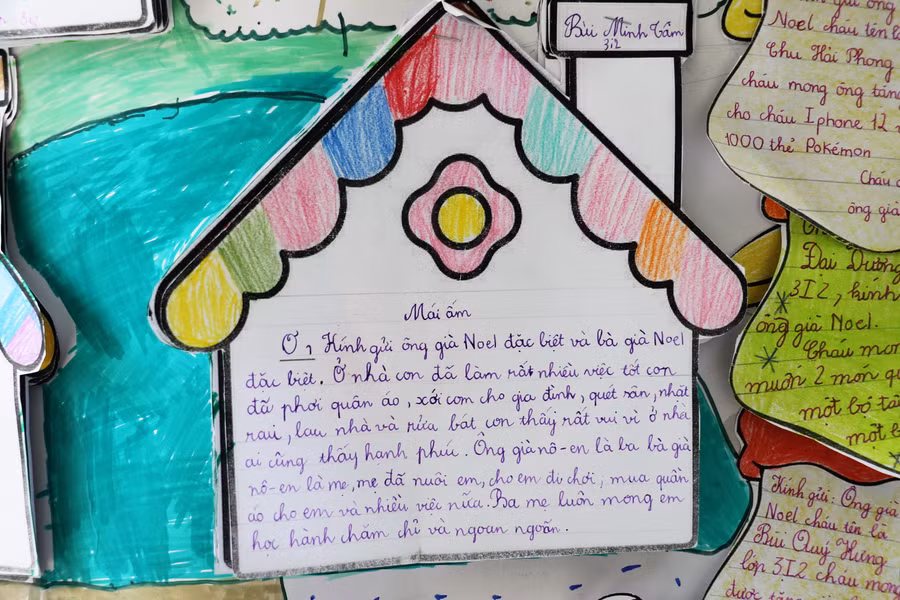 Bùi Minh Tâm
3i2
Mái ấm
Ơ, Kính gửi ông già Noel đặc biệt và bà già Noel
đặc biệt. Ở nhà con đã làm rất nhiều việc tốt con
đã phơi quần áo, xới cơm cho gia đình, quét sân, nhặt
rau, lau nhà và rửa bát con thấy rất vui vì ở nhà
ai cũng thấy hạnh phúc. Ông già nô-en là ba bà già
nô-en là mẹ, mẹ đã nuôi em, cho em đi chơi, mua quần
áo cho em và nhiều việc nữa. Ba mẹ luôn mong em
học hành chăm chỉ và ngoan ngoãn.
gửi ông
Noel cháu tên l
Chu Hải Phong
cháu mong ông tặng
cho cháu Iphone 12
1000 thẻ Pokémon
Cháu
ông già
Đại Dương
3I2, kính
ông già Noel.
Cháu mon
muốn 2 món qu
một bó
một b
Kính gửi: Ông già
Noel cháu tên là
Bùi Quý Hưng
lớp 3I2 cháu mong
được tặng